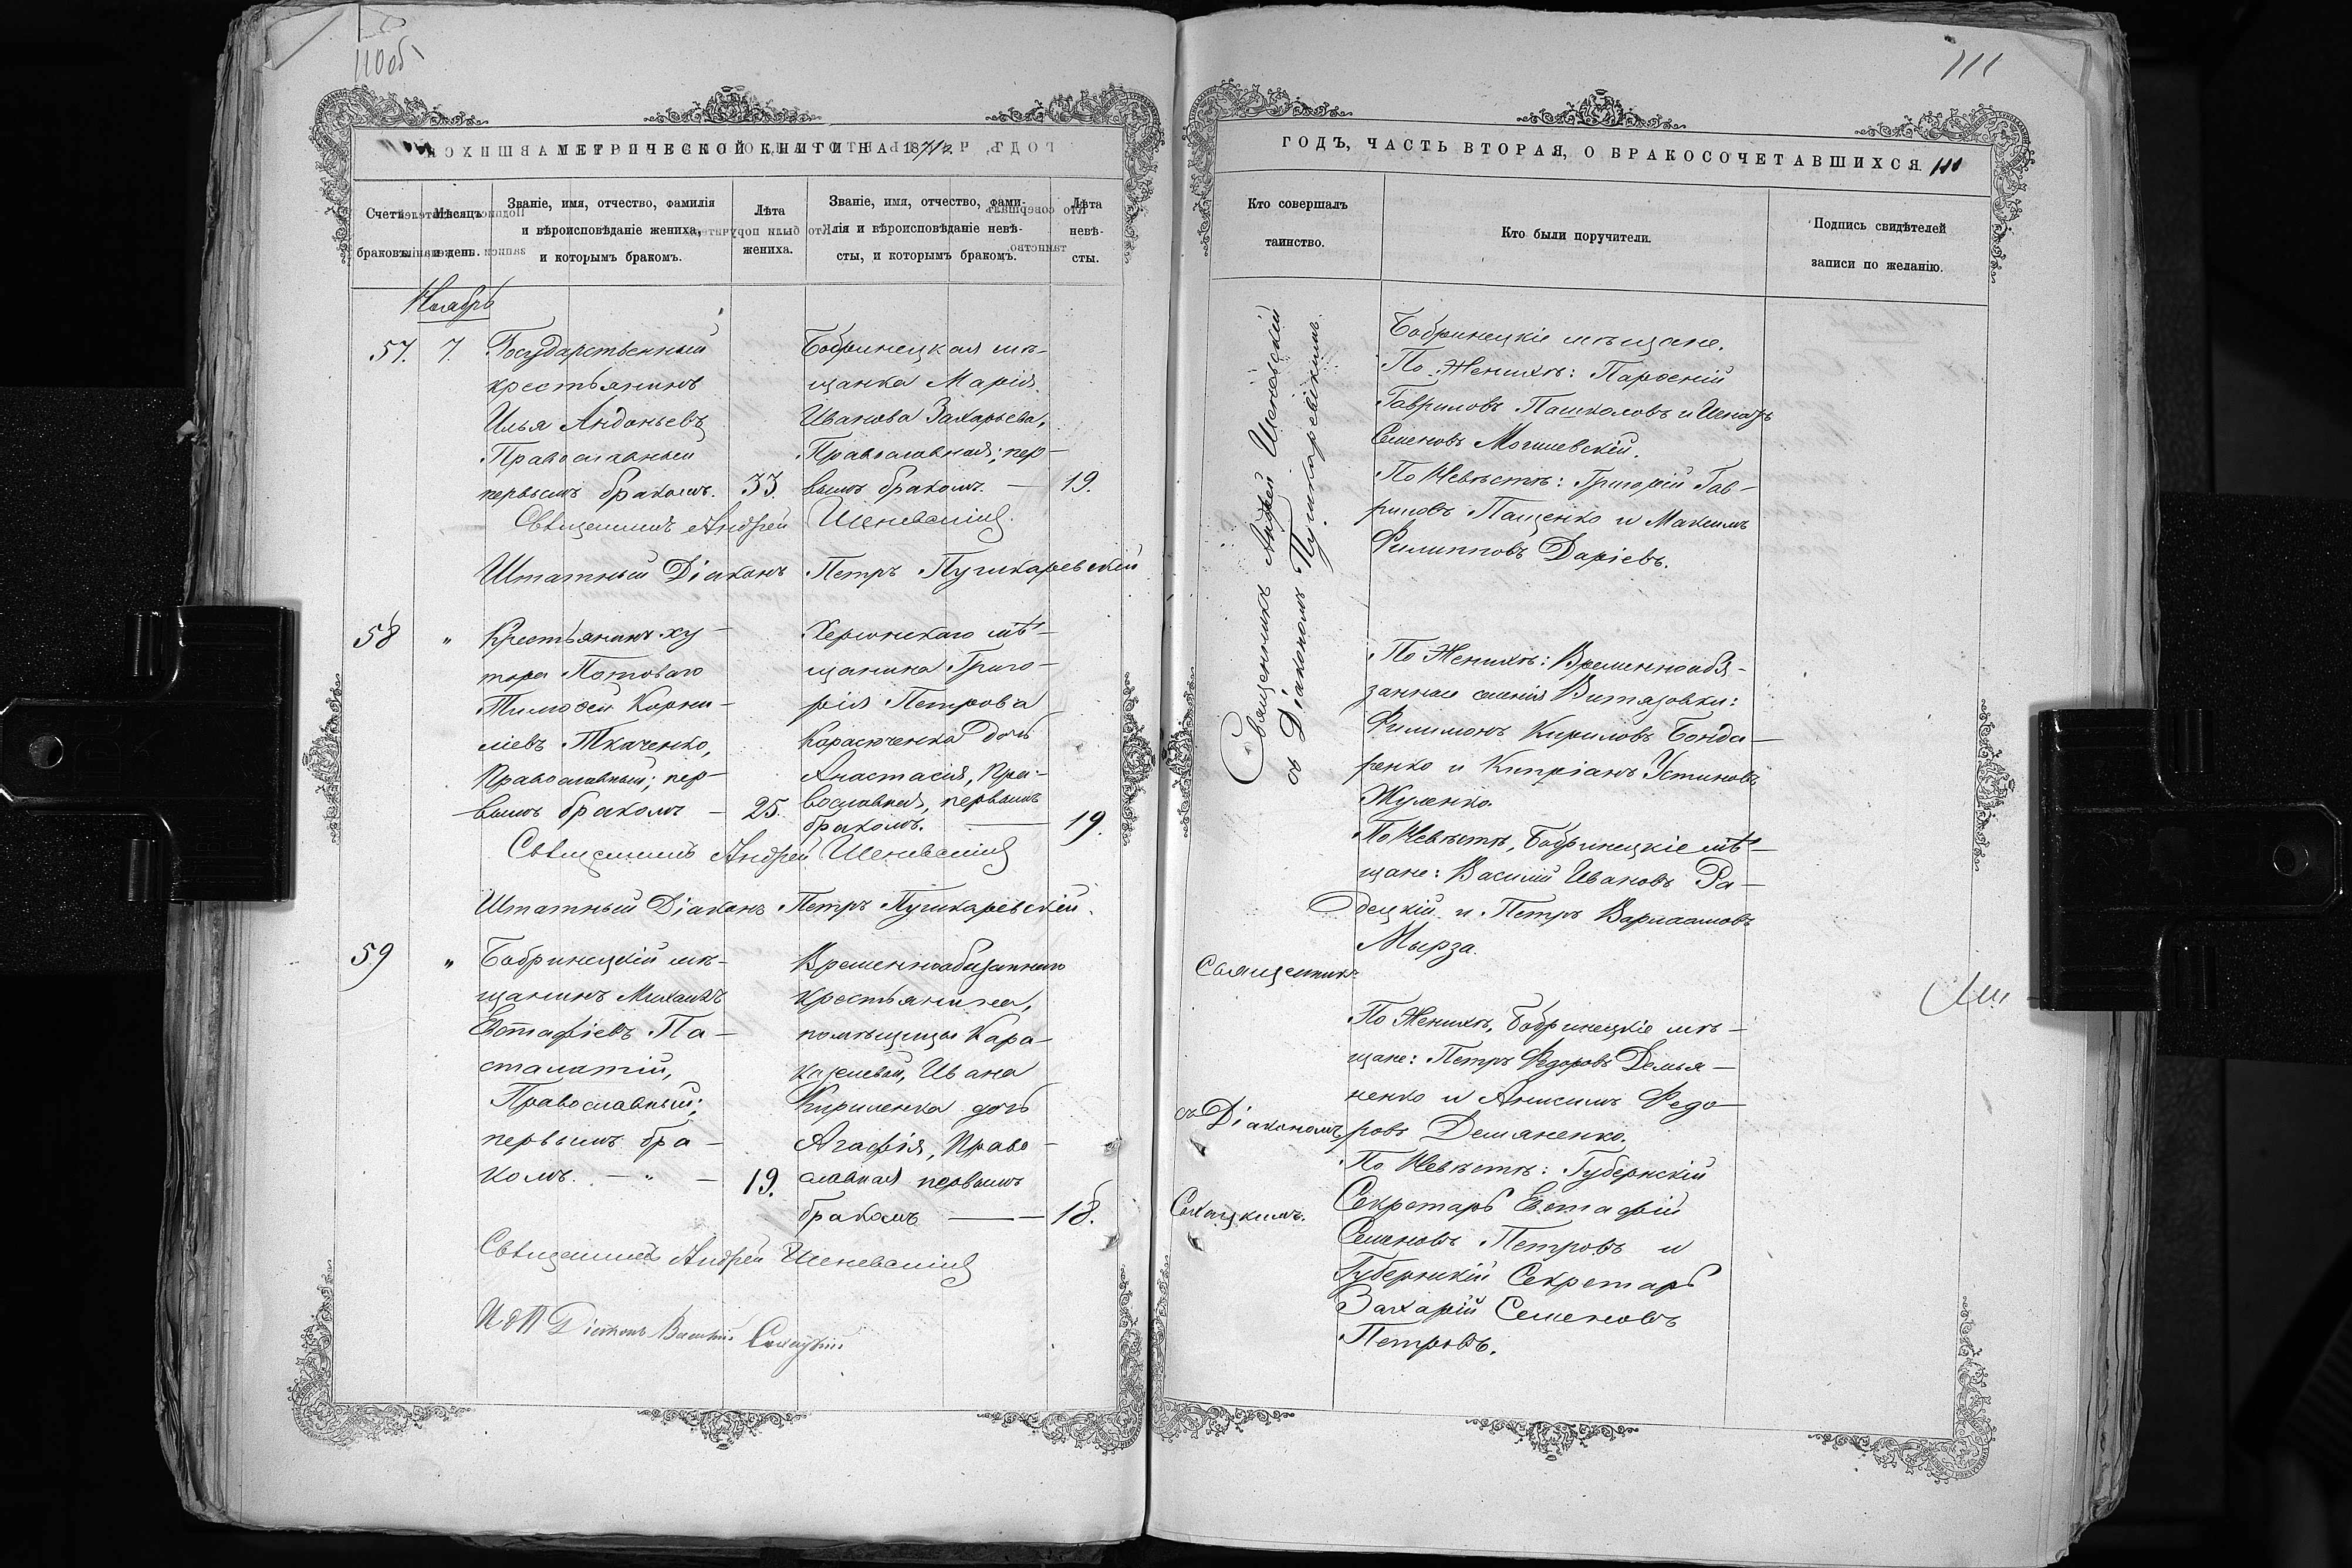 110об
МЕТРИЧЕСКОЙ КНИГИ НА 1871 г.
Счетъ браковъ.
Мѣсяцъ и день.
Званіе, имя, отчество, фамилія
и вѣроисповѣданіе жениха,
и которымъ бракомъ.
Лѣта
жениха.
Званіе, имя, отчество, фами-
лія и вѣроисповѣданіе невѣ-
сты, и которымъ бракомъ.
Лѣта
невѣ-
сты.
Ноябрь
57. 7.
Государственный
крестьянинъ
Илья Андоньевъ
Православный
первымъ бракомъ. 33.
Бобринецкая мѣ-
щанка Марія
Иванова Захарьева,
Православная; пер-
вымъ бракомъ. — 19.
Священникъ Андрей
Штатный Діаконъ Петръ Пушкаревскій
58 "
Крестьянинъ ху-
тора Потоваго
Тимофей Корни-
ліевъ Ткаченко,
Православный; пер-
вымъ бракомъ — 25.
Херсонскаго мѣ-
щанина Григо-
рія Петрова
Карасюченка дочь
Анастасія, Пра-
вославная, первымъ
бракомъ. — 19.
Священникъ Андрей
Штатный Діаконъ Петръ Пушкаревскій.
59 "
Бобринецкій мѣ-
щанинъ Михаилъ
Евстафіевъ Па-
сталатій,
Православный;
первымъ бра-
комъ. — " — 19.
Временнообязаннаго
крестьянина,
помѣщицы Кара-
казиевой, Ивана
Кириленка дочь
Агафія, Право-
славная первымъ
бракомъ — 18.
Священникъ Андрей
Діаконъ Василій Сахацкій
111
ГОДЪ, ЧАСТЬ ВТОРАЯ, О БРАКОСОЧЕТАВШИХСЯ. 111
Кто совершалъ
таинство.
Кто были поручители.
Подпись свидѣтелей
записи по желанію.
Священникъ Андрей
съ Діакономъ Пушкаревскимъ.
Бобринецкіе мѣщане.
По Женихѣ: Парфеній
Гавриловъ Пашколовъ и
Семеновъ Могилевскій.
По Невѣстѣ: Григорій Гав-
риловъ Пащенко и Максимъ
Филипповъ Даріевъ.
По Женихѣ: Временнообя-
занные селенія Витязовки:
Филимонъ Кириловъ Бонда-
ренко и Кипріанъ Устиновъ
Жуленко.
По Невѣстѣ, Бобринецкіе мѣ-
щане: Василій Ивановъ Ра-
децкій и Петръ Варлаамовъ
Мырза.
Священникъ
съ Діакономъ
Сахацкимъ.
По Женихѣ, Бобринецкіе мѣ-
щане: Петръ Федоровъ Демья-
ненко и Анисимъ Федо-
ровъ Демяненко.
По Невѣстѣ: Губернскій
Секретарь Евстафій
Семеновъ Петровъ и
Губернскій Секретарь
Захарій Семеновъ
Петровъ.